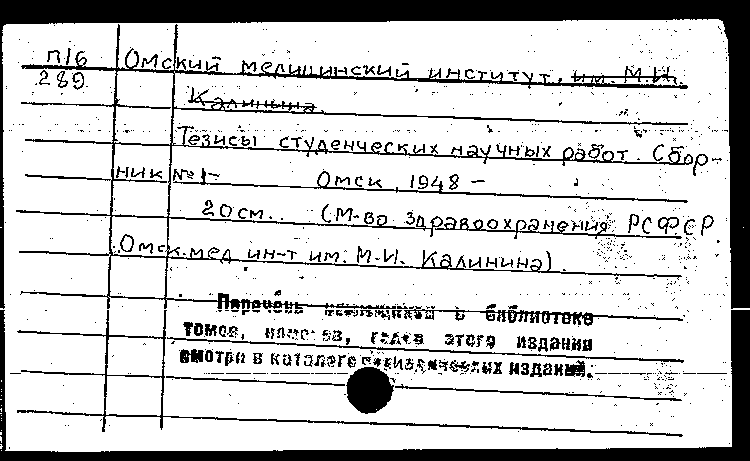 П16
289
Омский медицинский институт, им. М.И.
Калинина.
Тезисы студенческих научных работ. Сбор-
ник №1- Омск, 1948-
20см.. (М-во здравоохранения РСФСР.
Омск.мед ин-т им. М.И. Калинина).
Перечень имеющихся в библиотеке
томов, номеров, годов этого издания
смотри в каталоге периодических изданий.